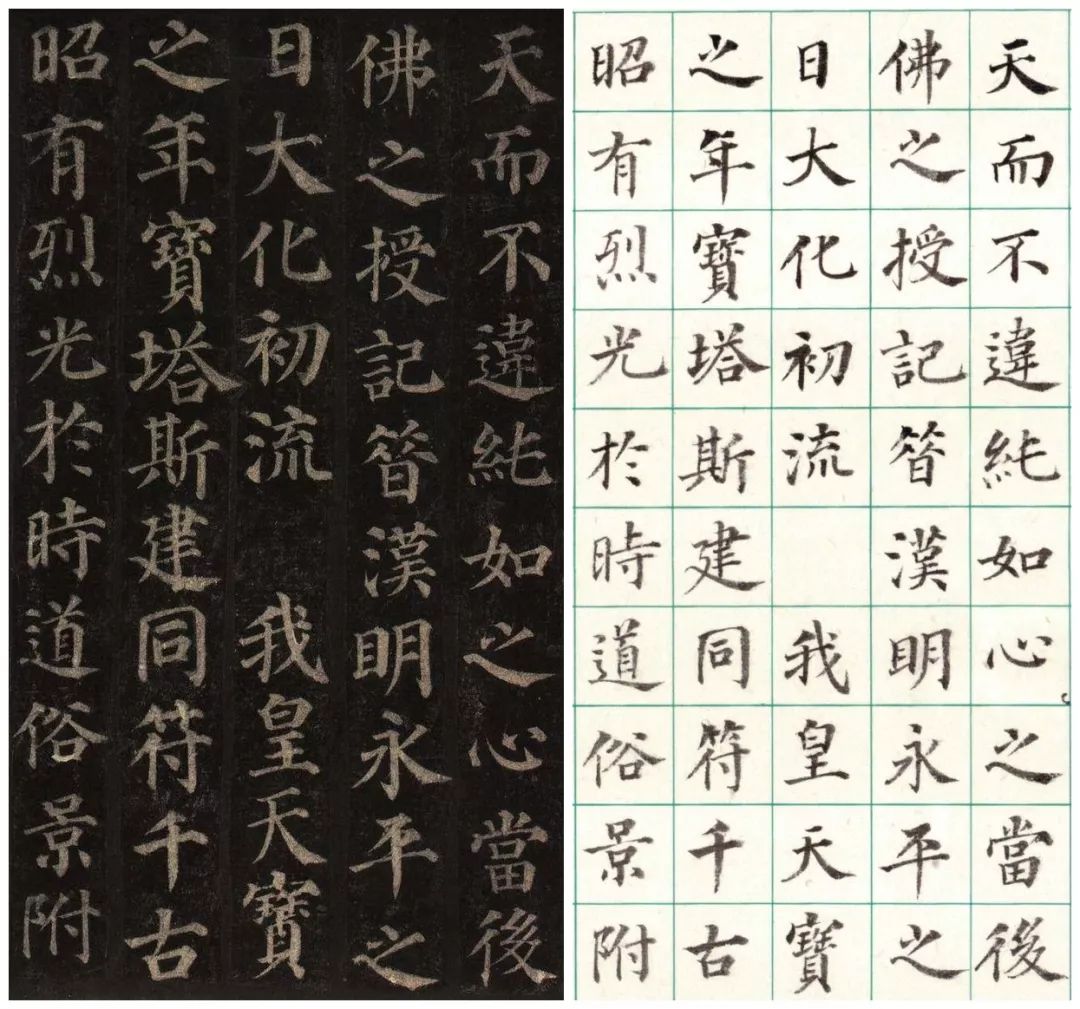 天而不違純如之心當後
佛之授記昔漢明永平之
日大化初流 我皇天寶
之年寶塔斯建同符千古
昭有烈光於時道俗景附
天而不違純如心之當後
佛之授記昔漢明永平之
日大化初流 我皇天寶
之年寶塔斯建同符千古
昭有烈光於時道俗景附